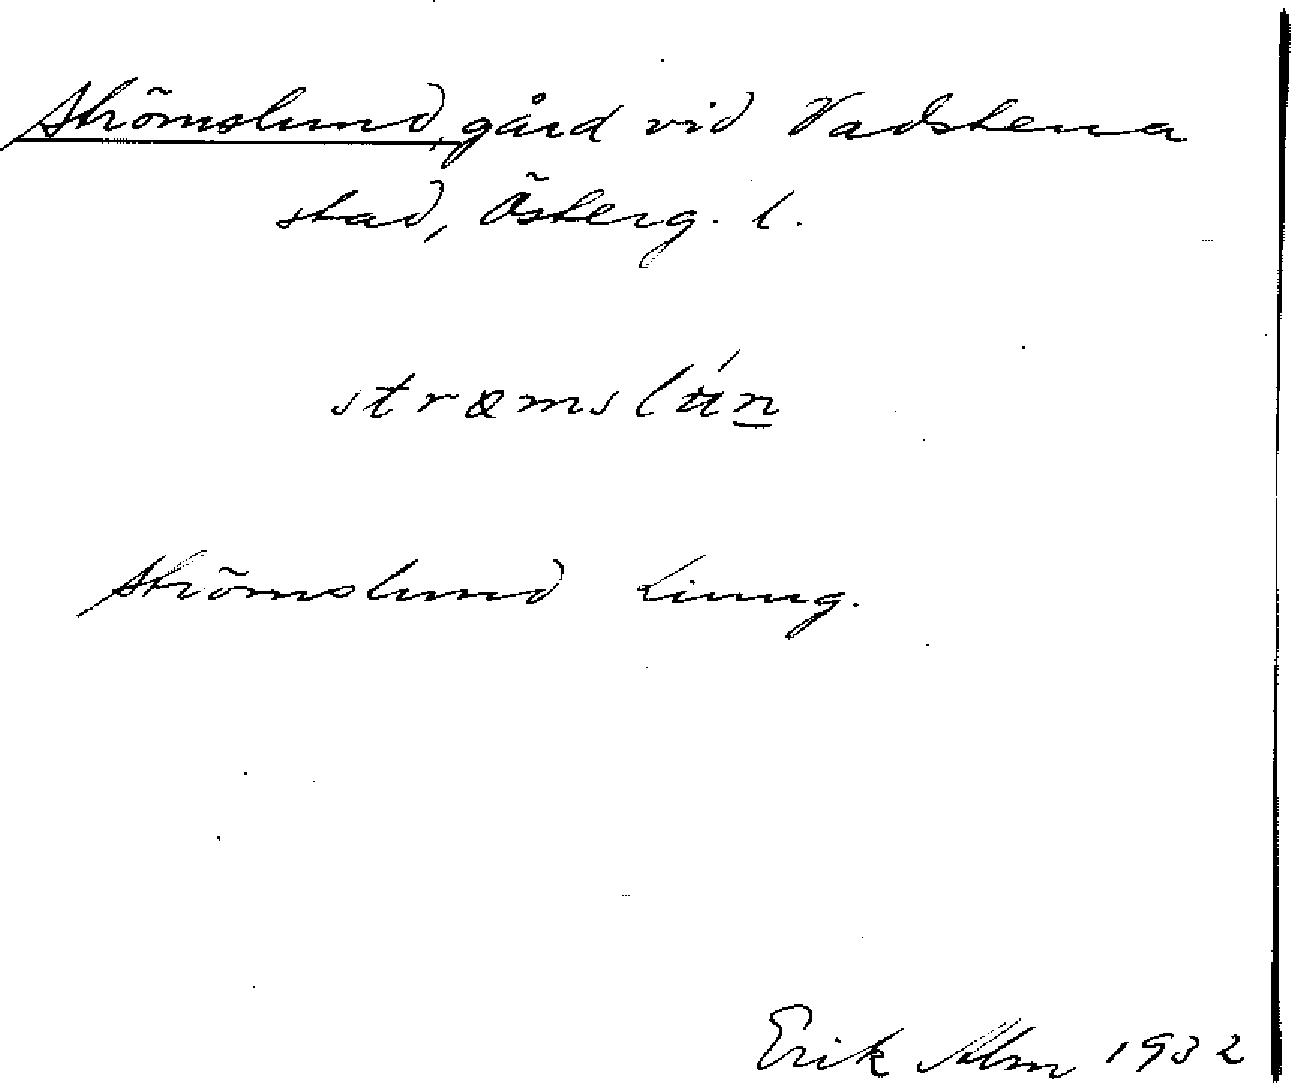 Strömslund, gård vid Vadstena
stad, Österg. l.
strømslún
Strömslund Ljung.
Erik Alm 1932